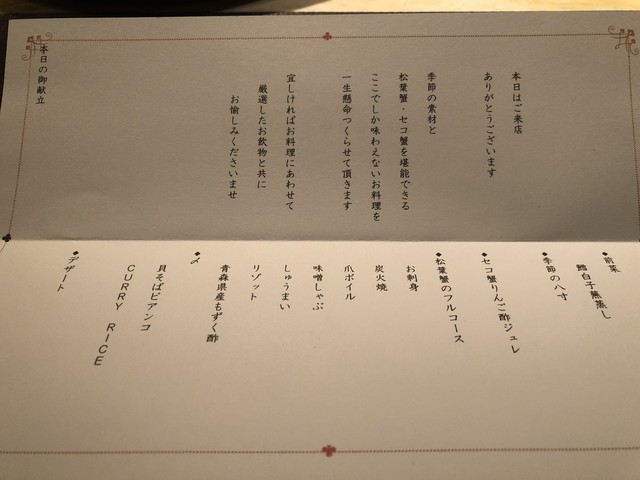 本日はご来店
ありがとうございます
季節の素材と
松葉蟹・セコ蟹を堪能できる
ここでしか味わえないお料理を
一生懸命つくらせて頂きます
宜しければお料理にあわせて
厳選したお飲物と共に
お愉しみくださいませ
本日の御献立
◆前菜
鱈白子燕蒸し
◆季節の八寸
◆セコ蟹りんご酢ジュレ
◆松葉蟹のフルコース
お刺身
炭火焼
爪ボイル
味噌しゃぶ
しゅうまい
リゾット
青森県産もずく酢
◆〆
貝そばビアンコ
CURRY RICE
◆デザート